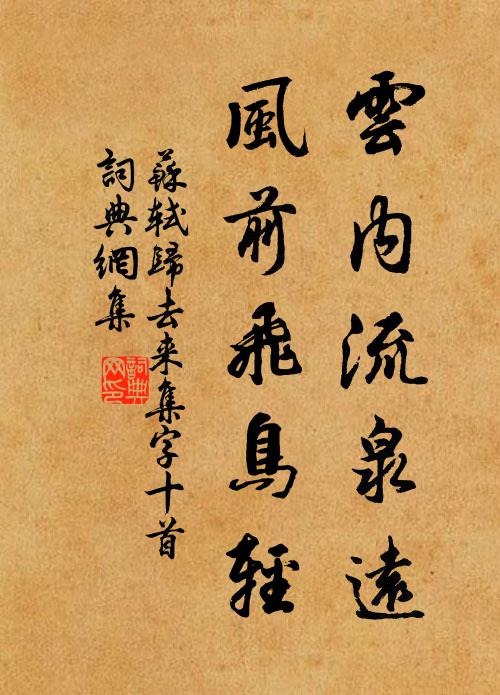 雲内流泉遠
風前飛鳥輕
蘇軾歸去来集字十首
詞典網集
詞典网印